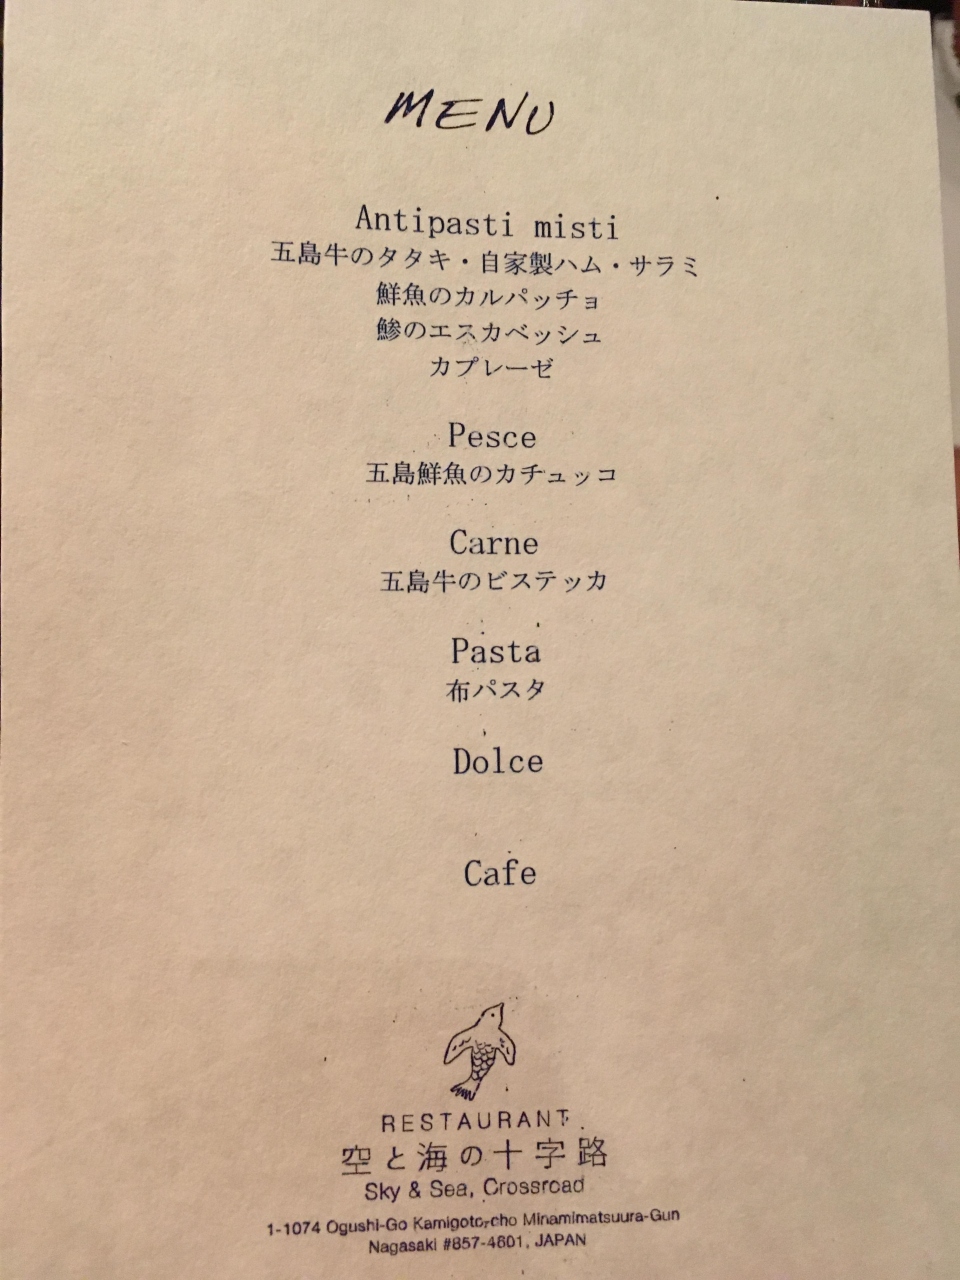 MENU
Antipasti misti
五島牛のタタキ・自家製ハム・サラミ
鮮魚のカルパッチョ
鯵のエスカベッシュ
カプレーゼ
Pesce
五島鮮魚のカチュッコ
Carne
五島牛のビステッカ
Pasta
布パスタ
Dolce
Cafe
RESTAURANT
空と海の十字路
Sky & Sea, Crossroad
1-1074 Ogushi-Go Kamigoto-cho Minamimatsuura-Gun
Nagasaki #857-4601, JAPAN